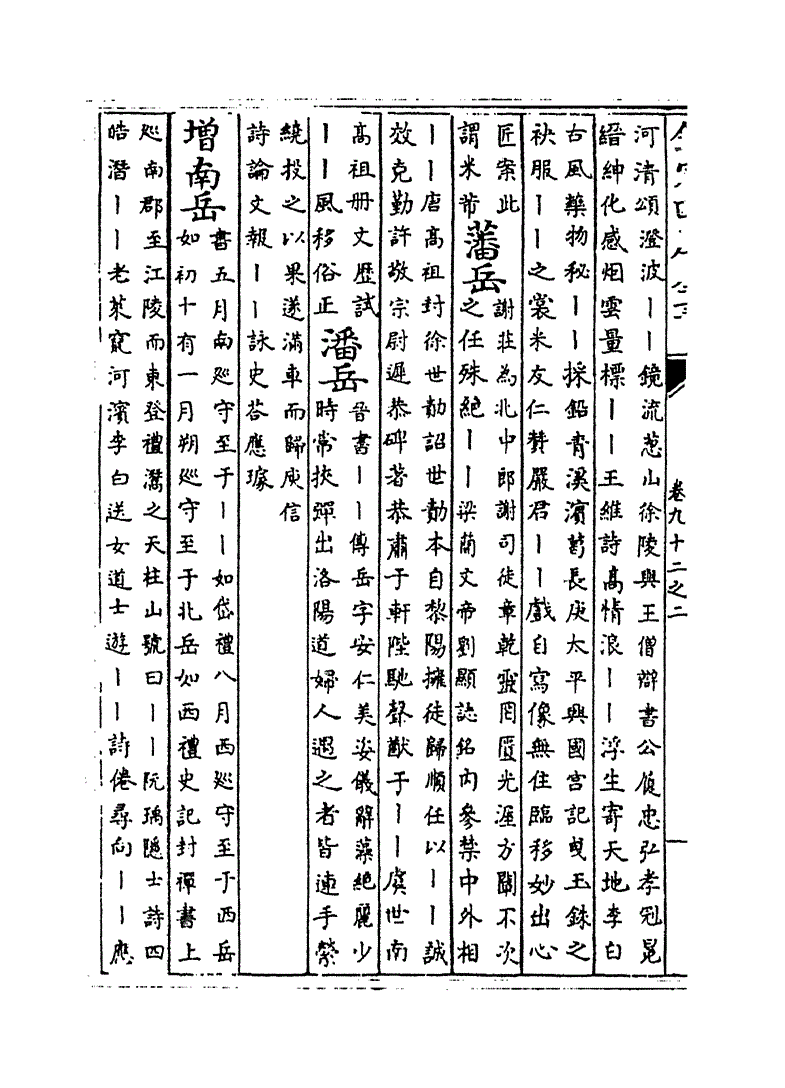 卷九十二之二
河清頌澄波丨丨鏡流葱山徐陵與王僧辯書公履忠弘孝冠冕
縉紳化感烟雲量標丨丨王維詩髙情浪丨丨浮生寄天地李白
古風藥物秘丨丨採鉛青溪濱葛長庚太平興國宫記曵玉銖之
袂服丨丨之裳米友仁賛嚴君丨丨戲自寫像無住臨移妙出心
匠案此
謂米芾
藩岳
謝莊為北中郎謝司徒章乾靈罔匱光涯方闡不次
之任殊絶丨丨梁簡文帝劉顯誌銘内參禁中外相
丨丨唐髙祖封徐世勣詔世勣本自黎陽擁徒歸順任以丨丨誠
效克勤許敬宗尉遲恭碑著恭肅于軒陛馳聲猷于丨丨虞世南
髙祖册文歴試
丨丨風移俗正
潘岳
晉書丨丨傳岳字安仁美姿儀辭藻絶麗少
時常挾彈出洛陽道婦人遇之者皆連手縈
繞投之以果遂滿車而歸庾信
詩論文報丨丨詠史荅應璩
增南岳
書五月南廵守至于丨丨如岱禮八月西廵守至于西岳
如初十有一月朔廵守至于北岳如西禮史記封禪書上
廵南郡至江陵而東登禮灊之天柱山號曰丨丨阮瑀隱士詩四
皓潛丨丨老萊竄河濱李白送女道士遊丨丨詩倦尋向丨丨應